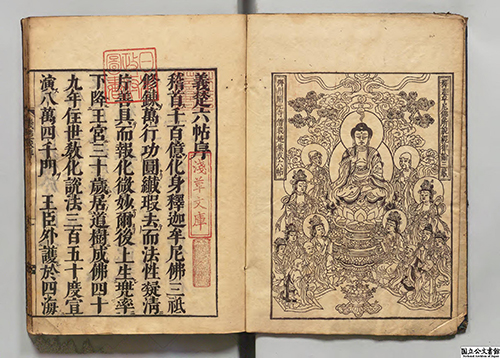 義楚六帖序
稽首千百億化身釋迦牟尼佛三祇
修鍊萬行功圓纖瑕去而法性凝清
片善具而報化微妙爾後上生兜率
下降王宮三十歲居道樹成佛四十
九年住世敎化說法三百五十度宣
演八萬四千門 王臣外護於四海
淺草文庫
国立公文書館